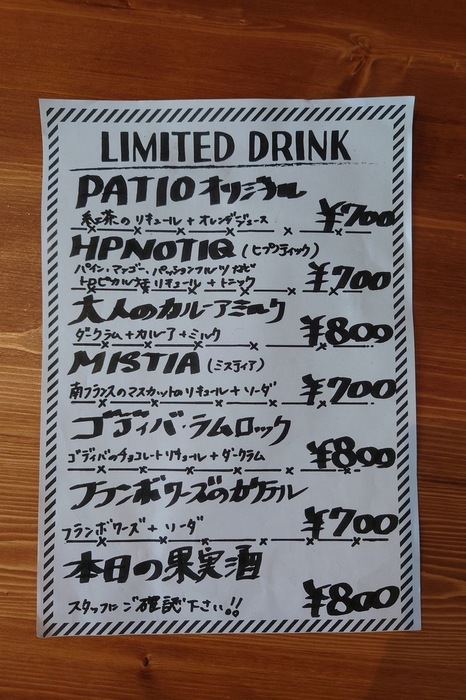 LIMITED DRINK
PATIOオリジナル
紅茶のリキュール+オレンジジュース ¥700
HPNOTIQ(ヒプノティック)
パイン、マンゴー、パッションフルーツなど
トロピカル系リキュール+トニック ¥700
大人のカルーアミルク
ダークラム+カルーア+ミルク ¥800
MISTIA(ミスティア)
南フランスのマスカットのリキュール+ソーダ ¥700
ゴディバ・ラムロック
ゴディバのチョコレートリキュール+ダークラム ¥800
フランボワーズのカクテル
フランボワーズ+ソーダ ¥700
本日の果実酒
スタッフにご確認下さい!! ¥800